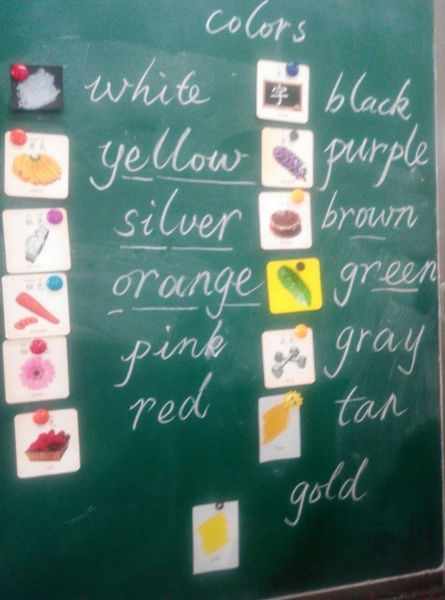 colors
white
yellow
silver
orange
pink
red
字
black
purple
brown
green
gray
tan
gold